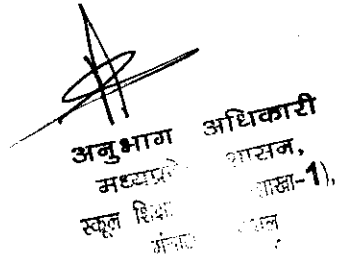 अनुभाग अधिकारी
मध्यप्रदेश शासन,
स्कूल शिक्षा शाखा-1),